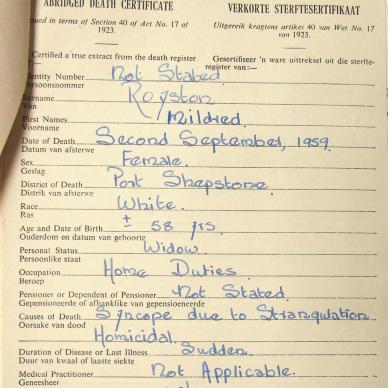 ABRIDGED DEATH CERTIFICATE VERKORTE STERFTESERTIFIKAAT
ued in terms of Section 40 of Act No. 17 of 1923. Uitgereik kragtens artikel 40 van Wet No. 17 van 1923.
Certified a true extract from the death register Gesertifiseer 'n ware uittreksel uit die sterfte-
register van:—
Identity Number Not Stated
Persoonsnommer
Surname Royston
Van
First Names Mildred
Voorname
Date of Death Second September, 1959
Datum van afsterwe
Sex Female.
Geslag
District of Death Port Shepstone
Distrik van afsterwe
Race White.
Ras
Age and Date of Birth ± 58 yrs
Ouderdom en datum van geboorte
Personal Status Widow
Persoonlike staat
Occupation Home Duties
Beroep
Pensioner or Dependent of Pensioner Not Stated
Gepensioeneerde of afhanklike van gepensioeneerde
Causes of Death Syncope due to Strangulation
Oorsake van dood
Homicidal.
Duration of Disease or Last Illness Sudden.
Duur van kwaal of laaste siekte
Medical Practitioner Not Applicable.
Geneesheer